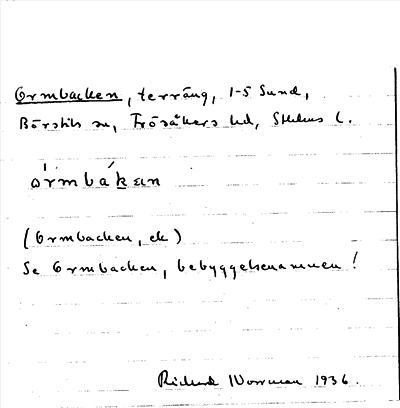 Ormbacken, terräng, 1-5 Sund,
Börstils sn, Frösåkers hd, Sthlms l.
òrmbákan
(Ormbacken, ek)
Se Ormbacken, bebyggelsenamnen!
Rickard Norrman 1936.